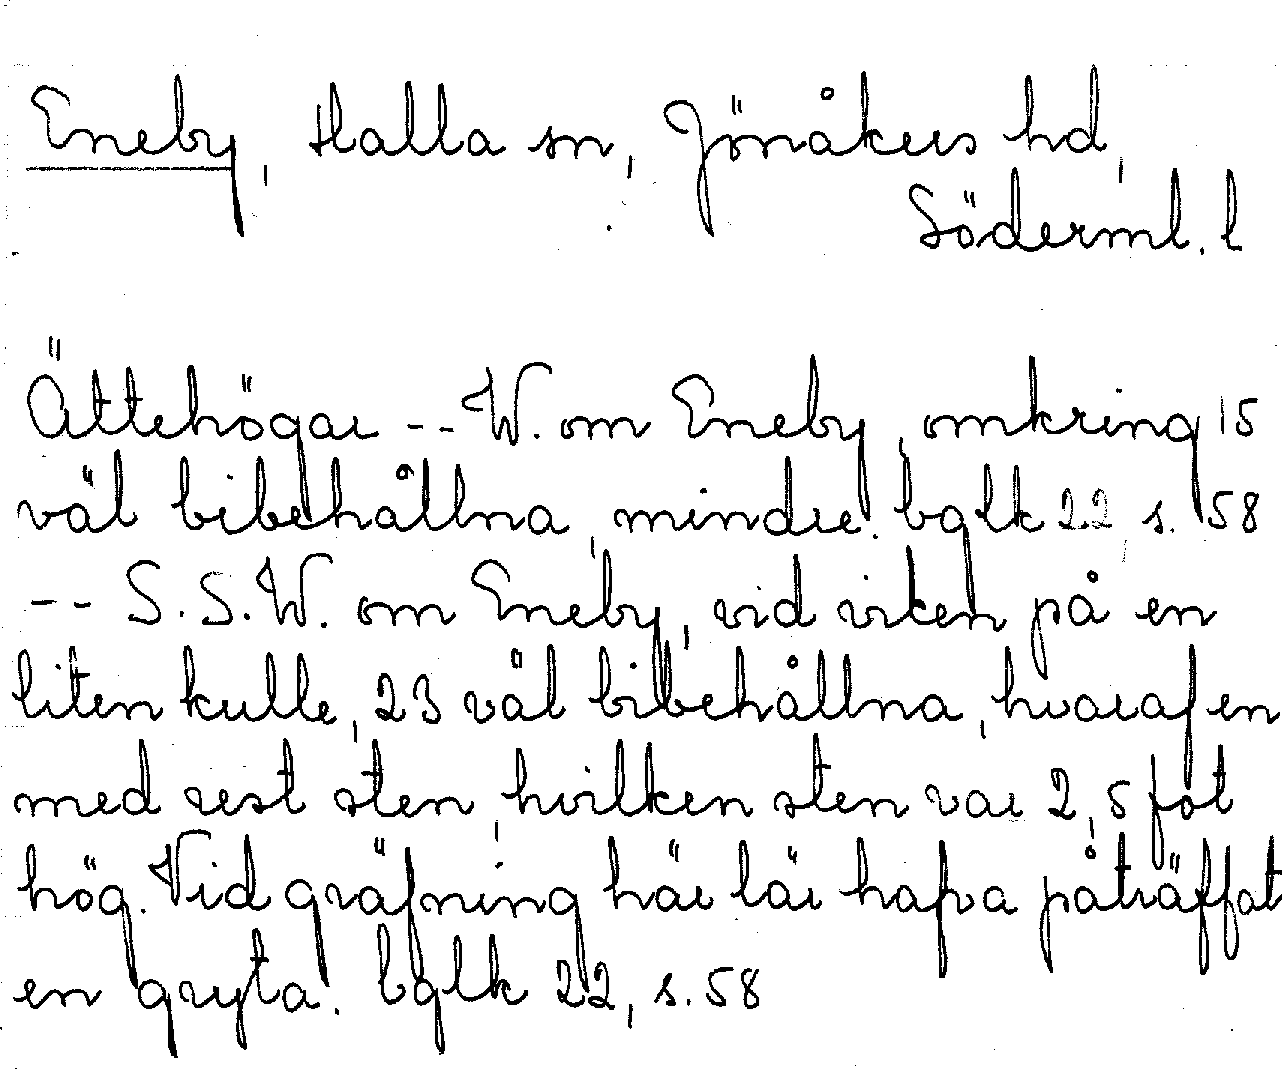 Eneby, Halla sn, Jönåkers hd,
Söderml. l
Ättehögar -- W. om Eneby, omkring 15
väl bibehållna, mindre. bglk 22 s. 58
-- S.S.W. om Eneby, vid viken på en
liten kulle, 23 väl bibehållna, hvaraf en
med rest sten, hvilken sten var 2,5 fot
hög. Vid gräfning här lär hafva påträffat
en gryta. bglk 22, s. 58